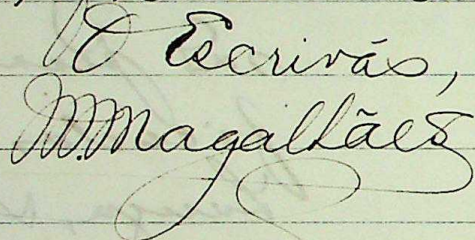 O Escrivão,
M. Magalhães